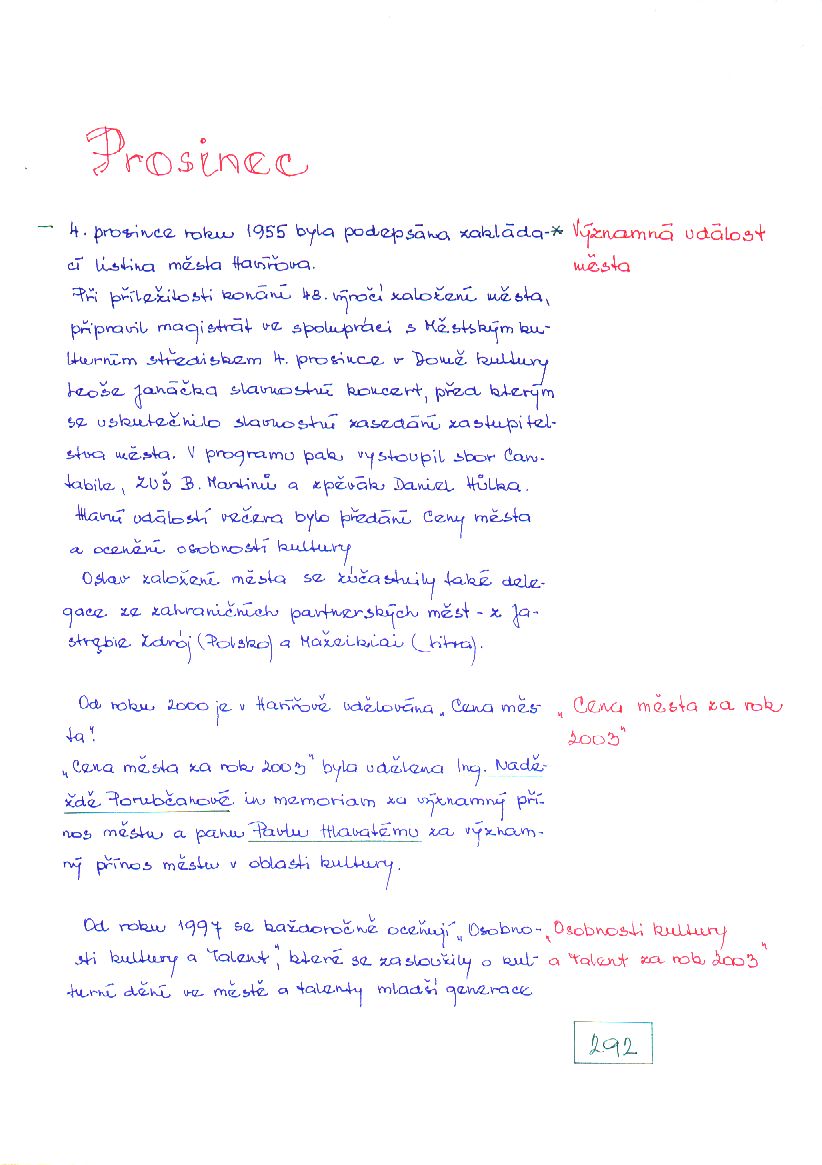 Prosinec
- 4. prosince roku 1955 byla podepsána zakláda-* Významná událost
cí listina města Havířova. města
Při příležitosti konání 48. výročí založení města,
připravil magistrát ve spolupráci s Městským ku-
lturním střediskem 4. prosince v Domě kultury
Leoše Janáčka slavnostní koncert, před kterým
se uskutečnilo slavnostní zasedání zastupitel-
stva města. V programu pak vystoupil sbor Can-
tabile, ZUŠ B. Martinů a zpěvák Daniel Hůlka.
Hlavní událostí večera bylo předání Ceny města
a ocenění osobností kultury
Oslav založení města se zúčastnily také dele-
gace ze zahraničních partnerských měst - z Ja-
strzębie Zdrój (Polsko) a Mažeikiai (Litva).
Od roku 2000 je v Havířově udělována „Cena měs- „Cena města za rok
ta". 2003"
„Cena města za rok 2003" byla udělena Ing. Nadě-
ždě Porubčanové in memoriam za významný pří-
nos městu a panu Pavlu Hlavatému za význam-
ný přínos městu v oblasti kultury.
Od roku 1997 se každoročně oceňují „Osobno- „Osobnosti kultury
sti kultury a Talent", které se zasloužily o kul- a Talent za rok 2003"
turní dění ve městě a talenty mladší generace
292